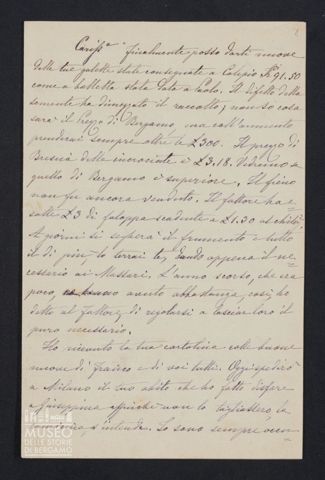 Cariss.ª finalmente posso darti nuove
delle tue galette state consegnate a Calepio
come a bolletta stata data a Paolo. Il difetto della
semente ha dimezzato il raccolto; non so cosa
sarà il prezzo di Bergamo, ma coll'aumento
prenderai sempre oltre le £300. Il prezzo di
Brescia delle incrociate è £3.18.
quello di Bergamo è superiore. Il fieno
non fu ancora venduto. Il fattore ha
£3 di faloppa scadente a £1.30 al chilò.
A giorni si saprà il frumento e tutto
il di più lo terrai te, dando appena il ne=
cessario ai Massari. L'anno scorso, che era
poco, avuto abbastanza, così ho
detto al fattore, di regolarsi a lasciar loro il
puro necessario.
Ho ricevuto la tua cartolina colle buone
nuove di Franco e di voi tutti. Oggi spedirò
a Milano il tuo abito che ho fatto disfare
a Giuseppina affinché non lo tagliassero, la
s'intende. Io sono sempre
MUSEO
DELLE STORIE
DI BERGAMO